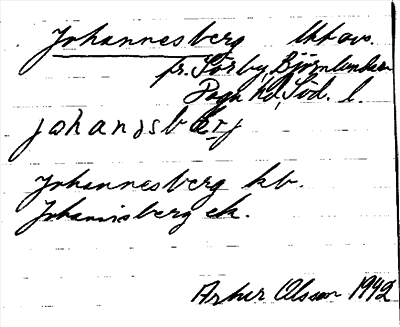 Johannesberg lht avs.
fr. Sörby, Björnlunda
Daga hd, Söd. l.
johanəsbærj
Johannesberg kb.
Johannisberg ek.
Arhur Olsson 1942